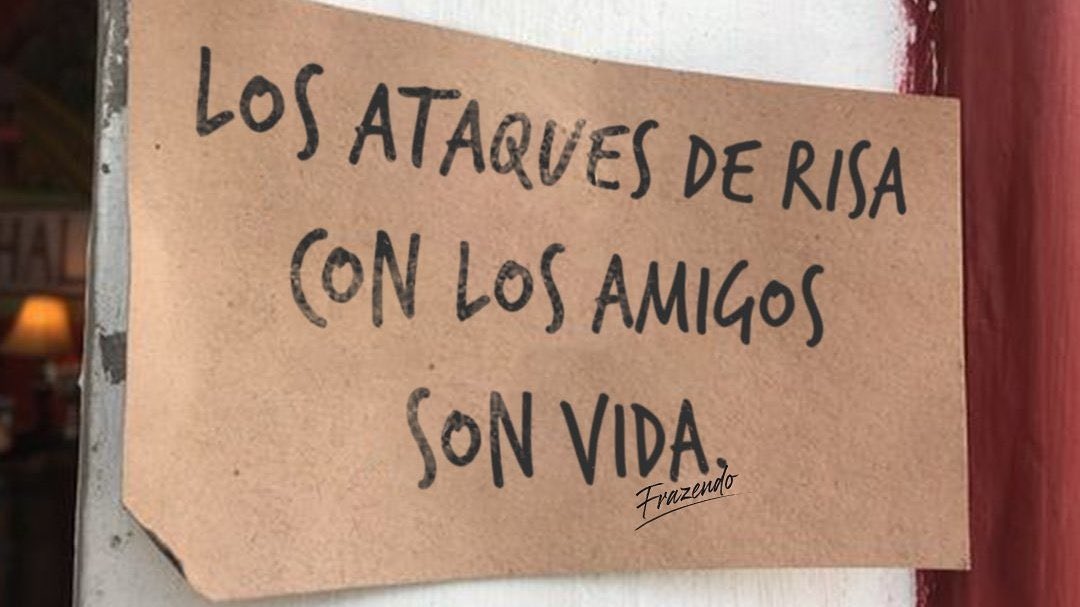 LOS ATAQUES DE RISA
CON LOS AMIGOS
SON VIDA.
Frazendo